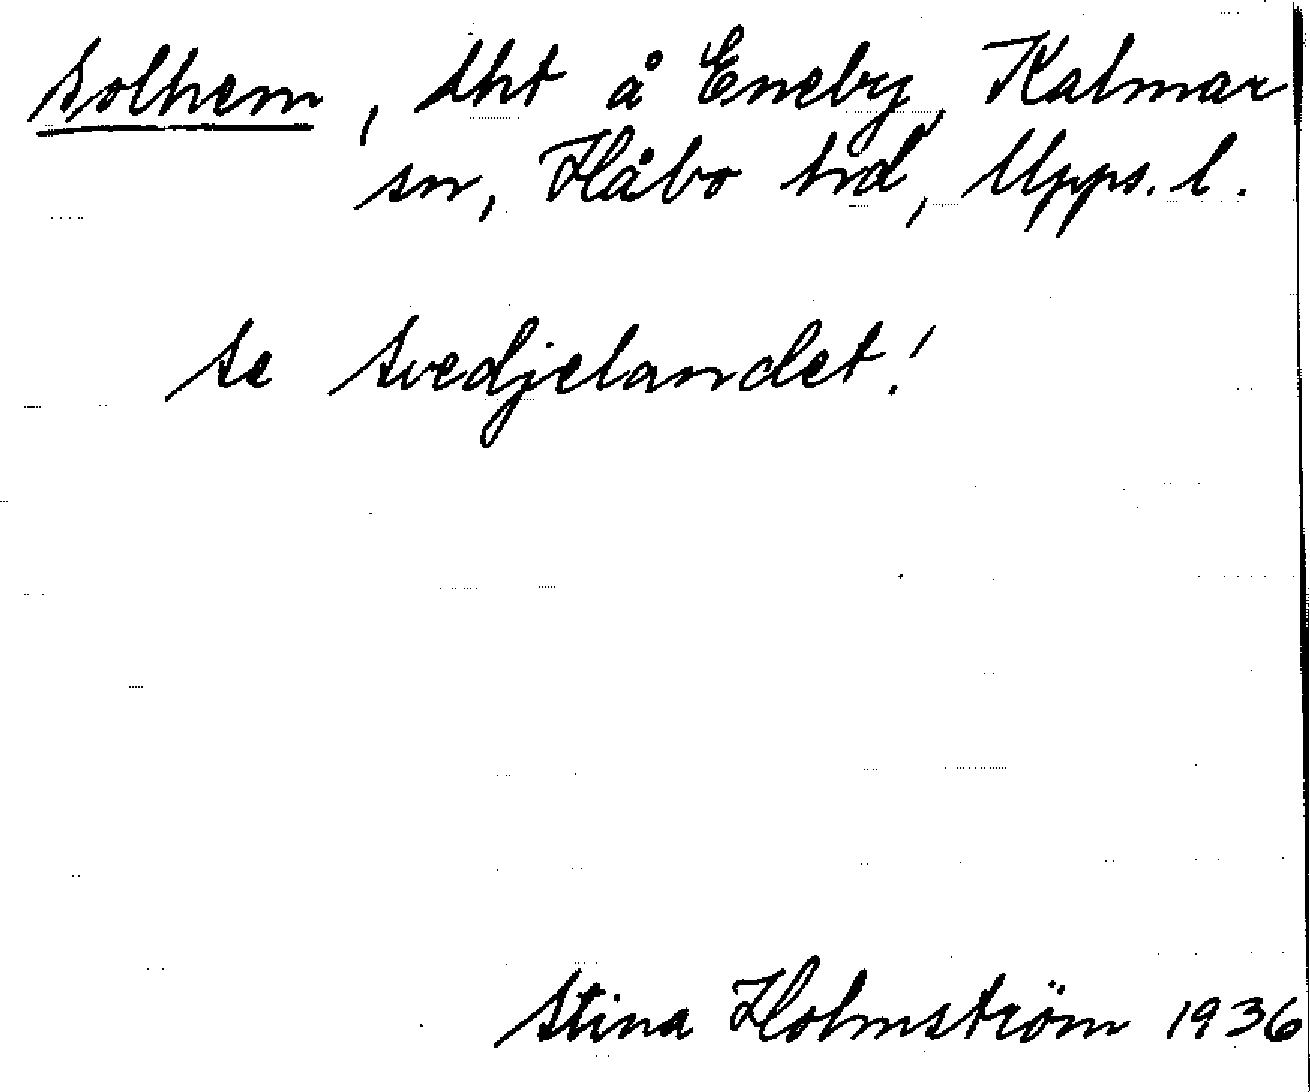 Solhem, lht å Eneby, Kalmar
sn, Håbo hd, Upps. l.
Se Svedjelandet!
Stina Holmström 1936